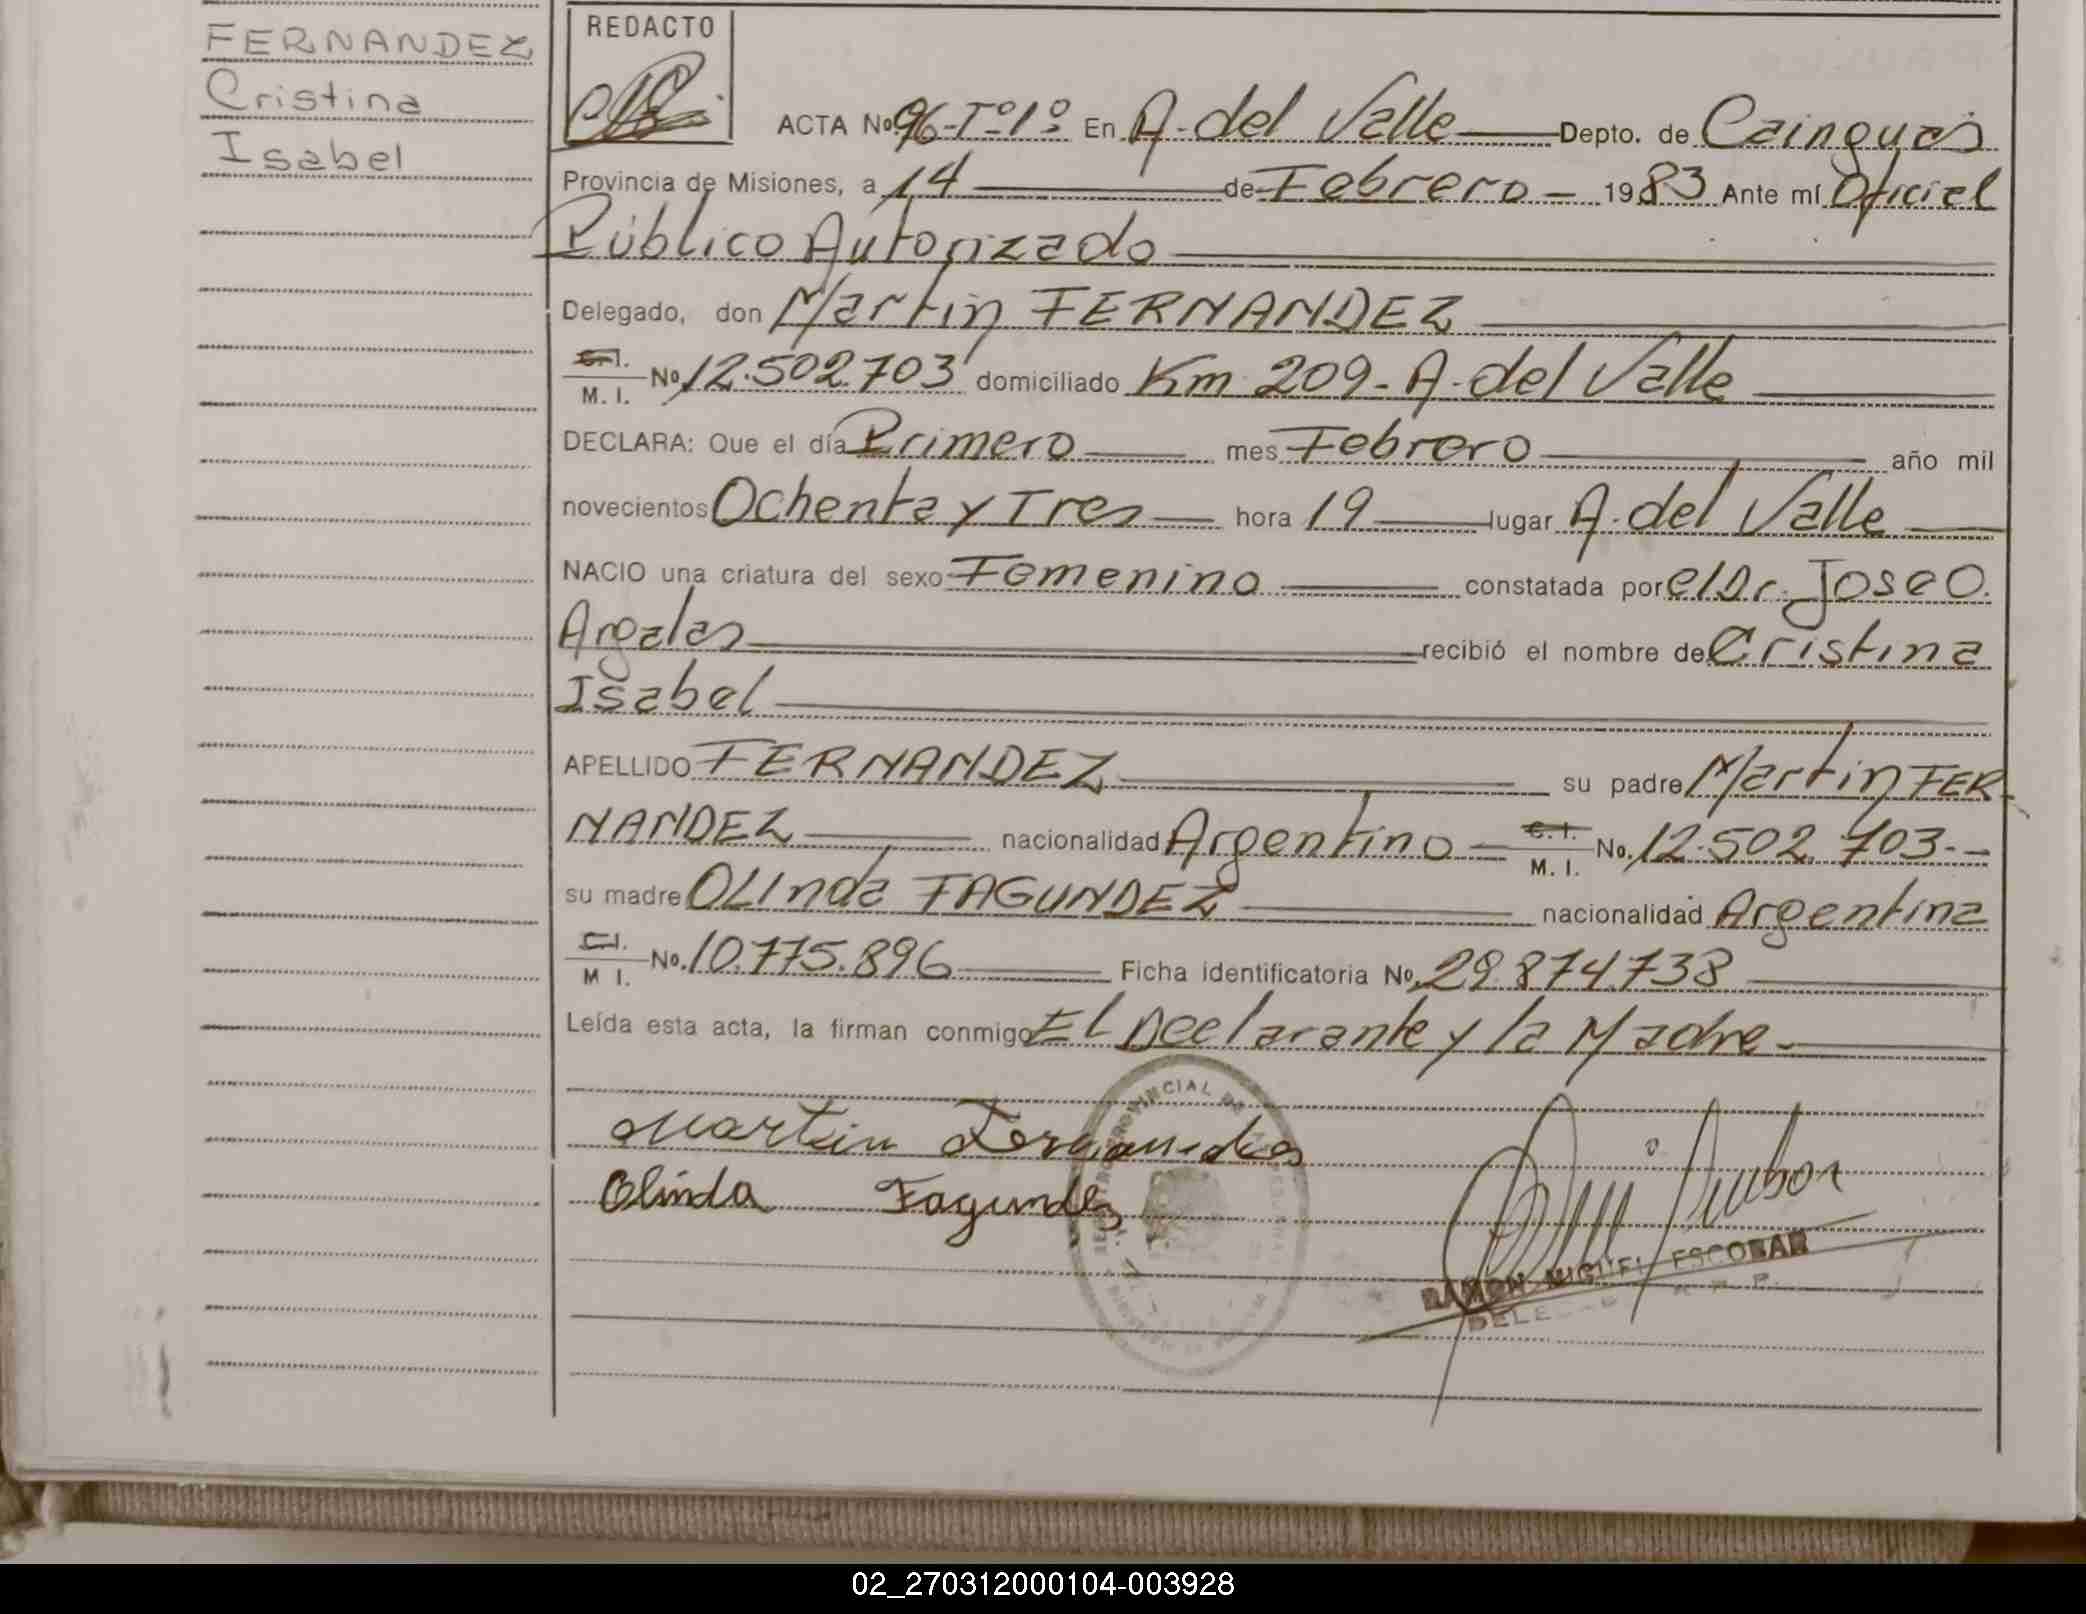 FERNANDEZ
Cristina
Isabel
REDACTO
ACTA No. 96-Tº1º En A. del Valle Depto. de Cainguas
Provincia de Misiones, a 14 de Febrero 1983 Ante mí Oficial
Público Autorizado
Delegado, don Martin FERNANDEZ
C.I.
M. I. No. 12.502.703 domiciliado Km 209- A. del Valle
DECLARA: Que el día Primero mes Febrero año mil
novecientos Ochenta y Tres hora 19 lugar A. del Valle
NACIO una criatura del sexo Femenino constatada por el Dr. Jose O.
Argalas recibió el nombre de Cristina
Isabel
APELLIDO FERNANDEZ su padre Martin FER
NANDEZ nacionalidad Argentino C.I. M. I. No. 12.502.703.-
su madre OLINda FAGUNDEZ nacionalidad Argentina
C.I.
M I. No. 10.775.896 Ficha identificatoria No. 29.874.738
Leída esta acta, la firman conmigo El Declarante y la Madre.-
Martin Fernandes
Olinda Fagundes
RAMON MIGUEL ESCOBAR
02_270312000104-003928